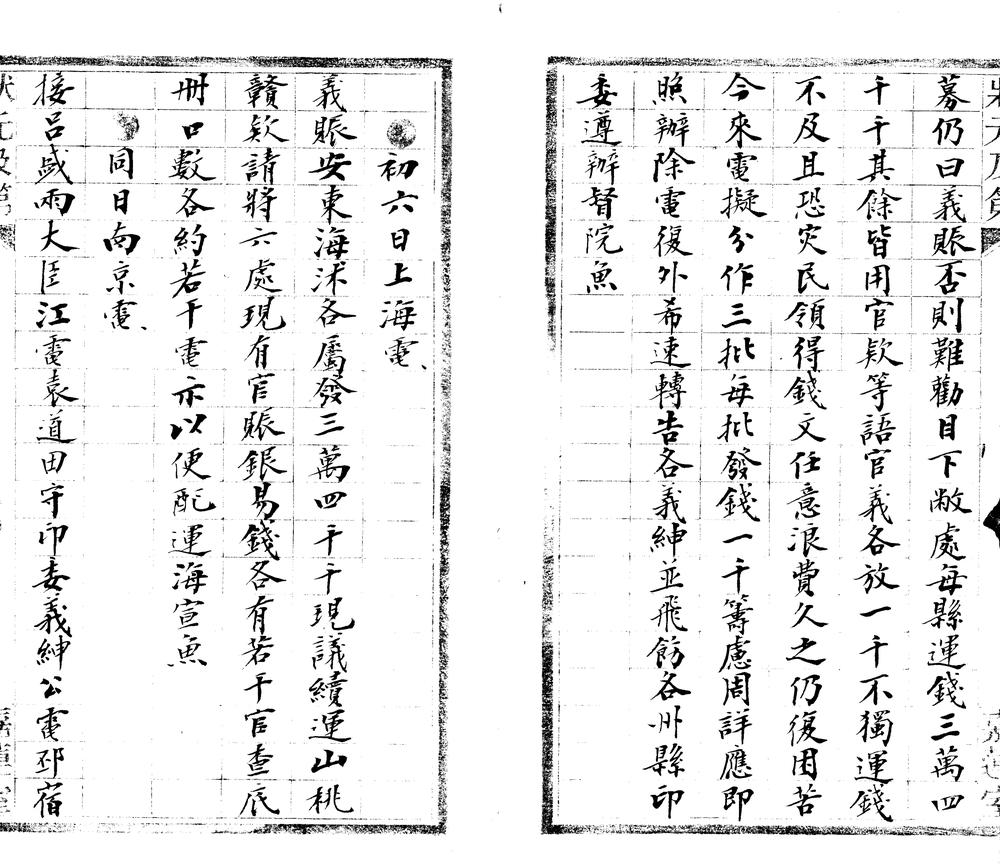 募仍曰義賬否則難勸目下敝處每縣運錢三萬四
千千其餘皆用官欵等語官義各放一千不獨運錢
不及且恐災民領得錢文任意浪費久之仍復困苦
今來電擬分作三批每批發錢一千籌慮周詳應即
照辦除電復外希速轉告各義紳並飛飭各州縣印
委遵辦督院魚
初六日上海電、
義賬安東海沭各屬發三萬四千千現議續運山桃
贛欵請將六處現有官賬銀易錢各有若干官查底
冊口數各約若干電示以便配運海宣魚
同日南京電、
接呂盛兩大臣江電袁道田守印委義紳公電邳宿